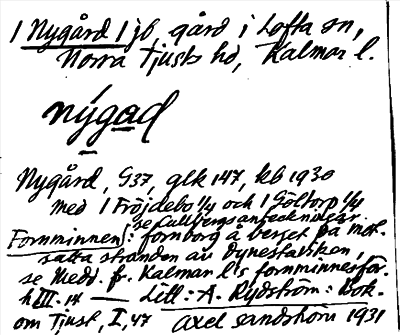 1 Nygård 1 jb, gård i Lofta sn,
Norra Tjusts hd, Kalmar l.
nýgad
Nygård, G37, glk 147, kb 1930
med 1 Fröjdebo 1/4 och 1 Göltorp 1/4
se Cullbergs anteckningar.
Fornminnen: fornborg å berget på mot-
satta stranden av Dynestadviken,
se Medd. fr. Kalmar l:s fornminnesför.
h III. 14 — Litt: A. Rydström: Bok.
om Tjust, I, 47 Axel Sandström 1931